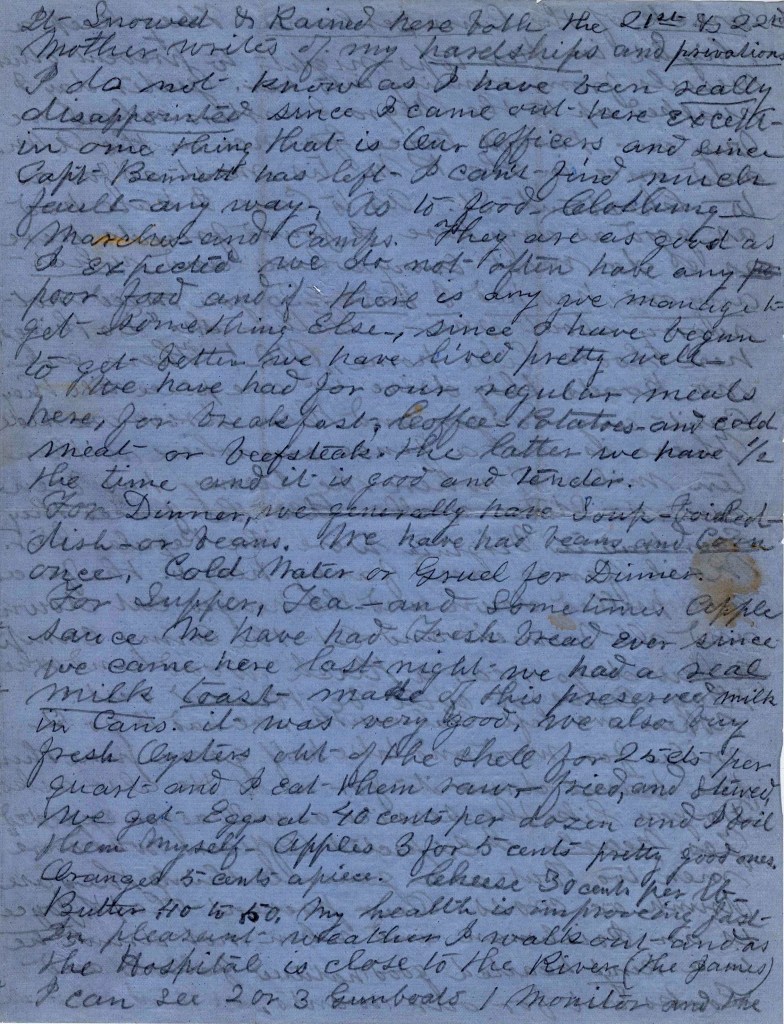 It Snowed & Rained here both the 21st & 22d
Mother writes of my hardships and privations
I do not know as I have been really
disappointed since I came out here except
in one thing that is Our Officers and since
Capt Bennett has left I can't find much
fault any way, As to food Clothing
Marches and Camps. They are as good as
I expected we do not often have any
poor food and if there is any we manage to
get something Else, since I have begun
to get better we have lived pretty well
We have had for our regular meals
here, for breakfast, Coffee Potatoes and cold
meat or beefsteak. the latter we have 1/2
the time and it is good and tender.
For Dinner, we generally have Soup boiled
dish or beans. We have had beans and Corn
once, Cold Water or Gruel for Dinner.
For Supper, Tea and Sometimes apple
sauce We have had Fresh bread ever since
we came here last night we had a real
milk toast made of this preserved milk
in Cans. it was very good, we also buy
fresh Oysters out of the shell for 25cts per
quart and I eat them raw fried, and stewed,
We get Eggs at 40 cents per dozen and I boil
them myself Apples 3 for 5 cents pretty good ones.
Oranges 5 cents a piece. Cheese 30 cents per lb
Butter 40 to 50. My health is improving fast
In pleasant weather I walk out and as
the Hospital is close to the River (the James)
I can see 2 or 3 Gunboats 1 Monitor and the